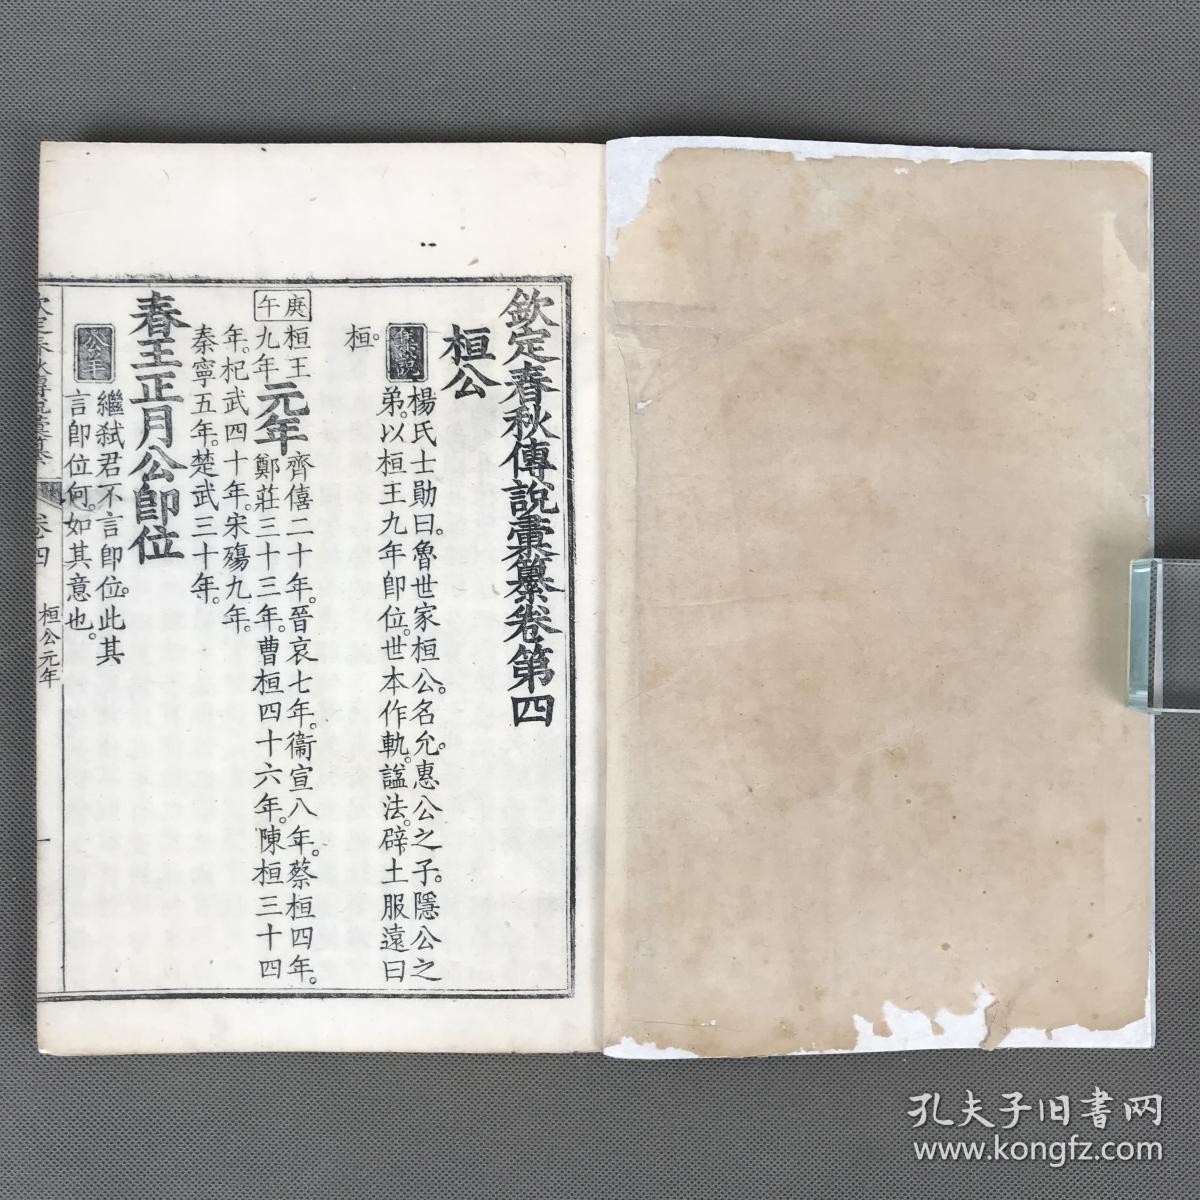 欽定春秋傳說彙纂卷第四
桓公
集說
楊氏士勛曰。魯世家桓公。名允。惠公之子。隱公之
弟。以桓王九年即位。世本作軌。諡法。辟土服遠曰
桓。
庚午
桓王九年
元年
齊僖二十年。晉哀七年。衞宣八年。蔡桓四年。
鄭莊三十三年。曹桓四十六年。陳桓三十四
年。杞武四十年。宋殤九年。
秦寧五年。楚武三十年。
春王正月公即位
公羊
繼弒君不言即位。此其
言即位何。如其意也。
欽定春秋傳說彙纂
卷四
桓公元年
一
孔夫子旧书网
www.kongfz.com